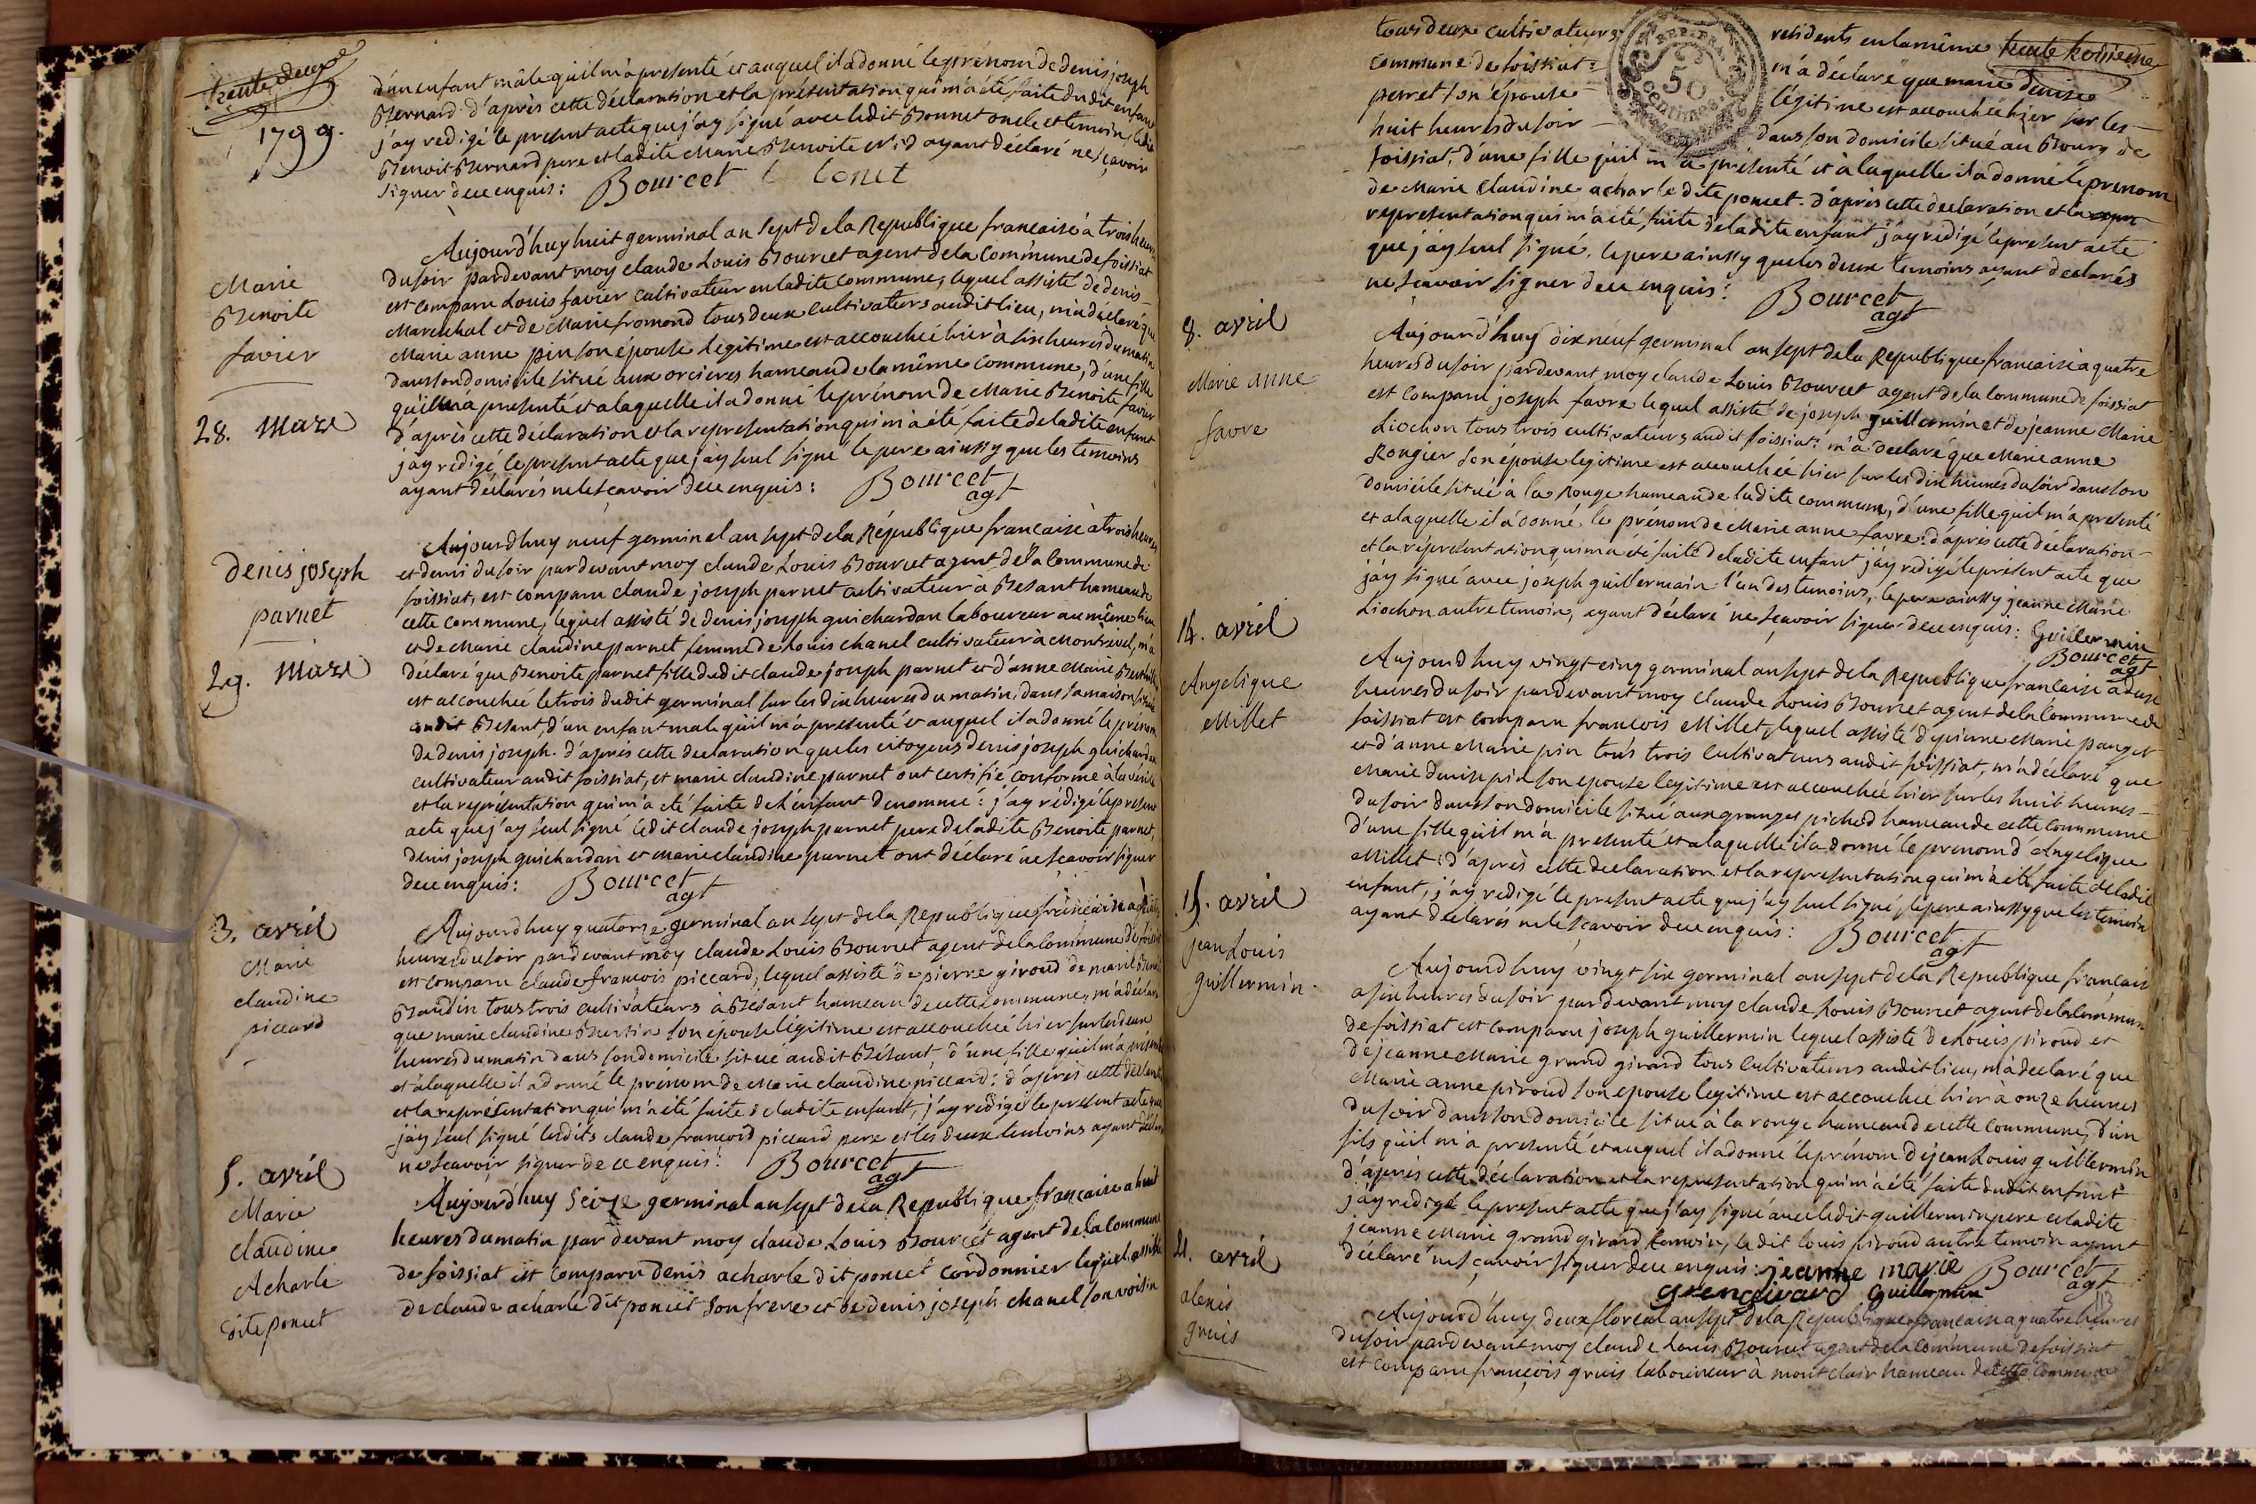 trente deux
1799.
d'un enfant mâle qu'il m'a presenté et auquel il a donné le prénom de denis joseph
Bernard. d'après cette déclaration et la présentation qui m'a été faite dudit enfant
j'ay redigé le present acte que j'ay signé avec ledit Bonnet oncle et temoin, ledit
Benoit Bernard pere et ladite Marie Benoite ayant déclaré ne sçavoir
signer de ce enquis: Bourcet
Marie
Benoite
favier
28. Mars
Aujourd'huy huit germinal an sept de la Republique francaise à trois heures
du soir pardevant moy claude Louis Bourcet agent de la Commune de foissiat
est comparu Louis favier cultivateur en ladite commune, lequel assisté de denis
Marechal et de Marie fromond tous deux cultivateurs audit lieu, m'a declaré que
Marie anne pin son épouse legitime est accouchée hier à six heures du matin
dans son domicile situé aux orcieres hameau de la même commune, d'une fille
qu'il m'a presenté et a laquelle il a donné le prénom de Marie Benoite favier
d'après cette déclaration et la representation qui m'a été faite de ladite enfant
j'ay redigé le present acte que j'ay seul signé le pere ainssy que les temoins
ayant déclarés ne le sçavoir de ce enquis: Bourcet
agt
denis joseph
parnet
29. Mars
Aujourdhuy neuf germinal an sept de la République francaise à trois heures
et demi du soir pardevant moy claude Louis Bourcet agent de la Commune de
foissiat, est comparu claude joseph parnet cultivateur à Besant hameau de
cette commune, lequel assisté de denis joseph guichardan laboureur au même lieu
et de Marie claudine parnet femme de Louis chanel cultivateur à Montrevel, m'a
déclaré que Benoite parnet fille dudit claude joseph parnet et d'anne Marie
est accouchée le trois dudit germinal sur les dix heures du matin dans sa maison située
audit Besant, d'un enfant male qu'il m'a presenté et auquel il a donné le prénom
de denis joseph. d'après cette declaration que les citoyens denis joseph guichardan
cultivateur audit foissiat, et marie claudine parnet ont certifié conforme à la vérité
et la représentation qui m'a eté faite de l'enfant denommé: j'ay rédigé le present
acte que j'ay seul signé ledit claude joseph parnet pere de ladite Benoite parnet,
denis joseph guichardan et marie claudine parnet ont déclaré ne sçavoir signer
de ce enquis: Bourcet
agt
3. avril
Marie
claudine
piccard
Aujourdhuy quatorze germinal an sept de la Republique francaise à
heures du soir pardevant moy claude Louis Bourcet agent de la Commune de foissiat
est comparu claude francois piccard, lequel assisté de pierre giroud de marie
Baudin tous trois cultivateurs à Besant hameau de cette commune, m'a déclaré
que marie claudine son épouse légitime est accouchée hier sur les deux
heures du matin dans son domicile situé audit Bésant, d'une fille qu'il m'a présenté
et à laquelle il a donné le prénom de Marie claudine piccard: d'après cette declaration
et la représentation qui m'a été faite de ladite enfant, j'ay rédigé le present acte que
j'ay seul signé lesdits claude francois piccard pere et les deux temoins ayant déclaré
ne sçavoir signer de ce enquis: Bourcet
agt
5. avril
Marie
claudine
Acharle
dite poncet
Aujourd'huy seize germinal an sept de la Republique française a huit
heures du matin par devant moy claude Louis Bourcet agent de la commune
de foissiat est comparu denis acharle dit poncet cordonnier lequel assisté
de claude acharle dit poncet son frere et de denis joseph chanel son voisin
trente troisieme
REP. FRA.
50
centimes
tous deux cultivateurs residents en la même
commune de foissiat m'a déclaré que marie denise
perret son épouse légitime est accouchée hier sur les
huit heures du soir dans son domicile situé au Bourg de
foissiat, d'une fille qu'il m'a présenté et à laquelle il a donné le prenom
de Marie Claudine acharle dite poncet. d'après cette declaration et la
representation qui m'a été faite de ladite enfant j'ay redigé le present acte
que j'ay seul signé, le pere ainssy que les deux temoins ayant declarés
ne sçavoir signer de ce enquis: Bourcet
agt
8. avril
Marie anne
favre
Aujourd'huy dix neuf germinal an sept de la Republique francaise à quatre
heures du soir pardevant moy claude Louis Bourcet agent de la Commune de foissiat
est comparu joseph favre lequel assisté de joseph guillermin et de jeanne Marie
Liochon tous trois cultivateurs audit foissiat: m'a déclaré que Marie anne
Rongier son épouse legitime est accouchée hier sur les dix heures du soir dans son
domicile situé à la Rouge hameau de ladite commune, d'une fille qu'il m'a presenté
et a laquelle il a donné le prénom de Marie anne favre: d'après cette declaration
et la representation qui m'a été faite de ladite enfant j'ay redigé le present acte que
j'ay signé avec joseph guillermain l'un des temoins, le pere ainssy jeanne Marie
Liochon autre temoin, ayant déclaré ne sçavoir signer de ce enquis: Guillermin
Bourcet
agt
14. avril
Angelique
Millet
Aujourdhuy vingt cinq germinal an sept de la Republique francaise à deux
heures du soir pardevant moy Claude Louis Bourcet agent de la Commune de
foissiat est comparu francois Millet, lequel assisté de pierre Marie panget
et d'anne Marie pin tous trois cultivateurs audit foissiat, m'a déclaré que
Marie denise pin son epouse legitime est accouchée hier sur les huit heures
du soir dans son domicile situé aux granges pichod hameau de cette Commune
d'une fille qu'il m'a presenté et a laquelle il a donné le prenom d'Angelique
Millet: d'après cette declaration et la representation qui m'a eté faite de ladite
enfant, j'ay redigé le present acte que j'ay seul signé, le pere ainssy que les temoins
ayant declarés ne le sçavoir de ce enquis: Bourcet
agt
15. avril
jean Louis
guillermin.
Aujourdhuy vingt six germinal an sept de la Republique francaise
a six heures du soir pardevant moy claude Louis Bourcet agent de la Commune
de foissiat est comparu joseph guillermin lequel assisté de Louis piroud et
de jeanne Marie grand girard tous cultivateurs audit lieu, m'a déclaré que
Marie anne piroud son epouse legitime est accouchée hier à onze heures
du soir dans son domicile situé à la rouge hameau de cette commune, d'un
fils qu'il m'a presenté et auquel il a donné le prénom de jean Louis guillermin
d'après cette déclaration et la representation qui m'a été faite dudit enfant
j'ay redigé le present acte que j'ay signé avec ledit guillermin pere et ladite
jeanne Marie grand girard temoin, le dit louis piroud autre temoin ayant
déclaré ne sçavoir signer de ce enquis: jeanne marie Bourcet
grengirard guillermin agt
21. avril
alexis
gruis
Aujourd'huy deux floréal an sept de la Republique francaise a quatre heures
du soir pardevant moy claude Louis Bourcet agent de la Commune de foissiat
est comparu françois gruis laboureur à mont clair hameau de cette Commune